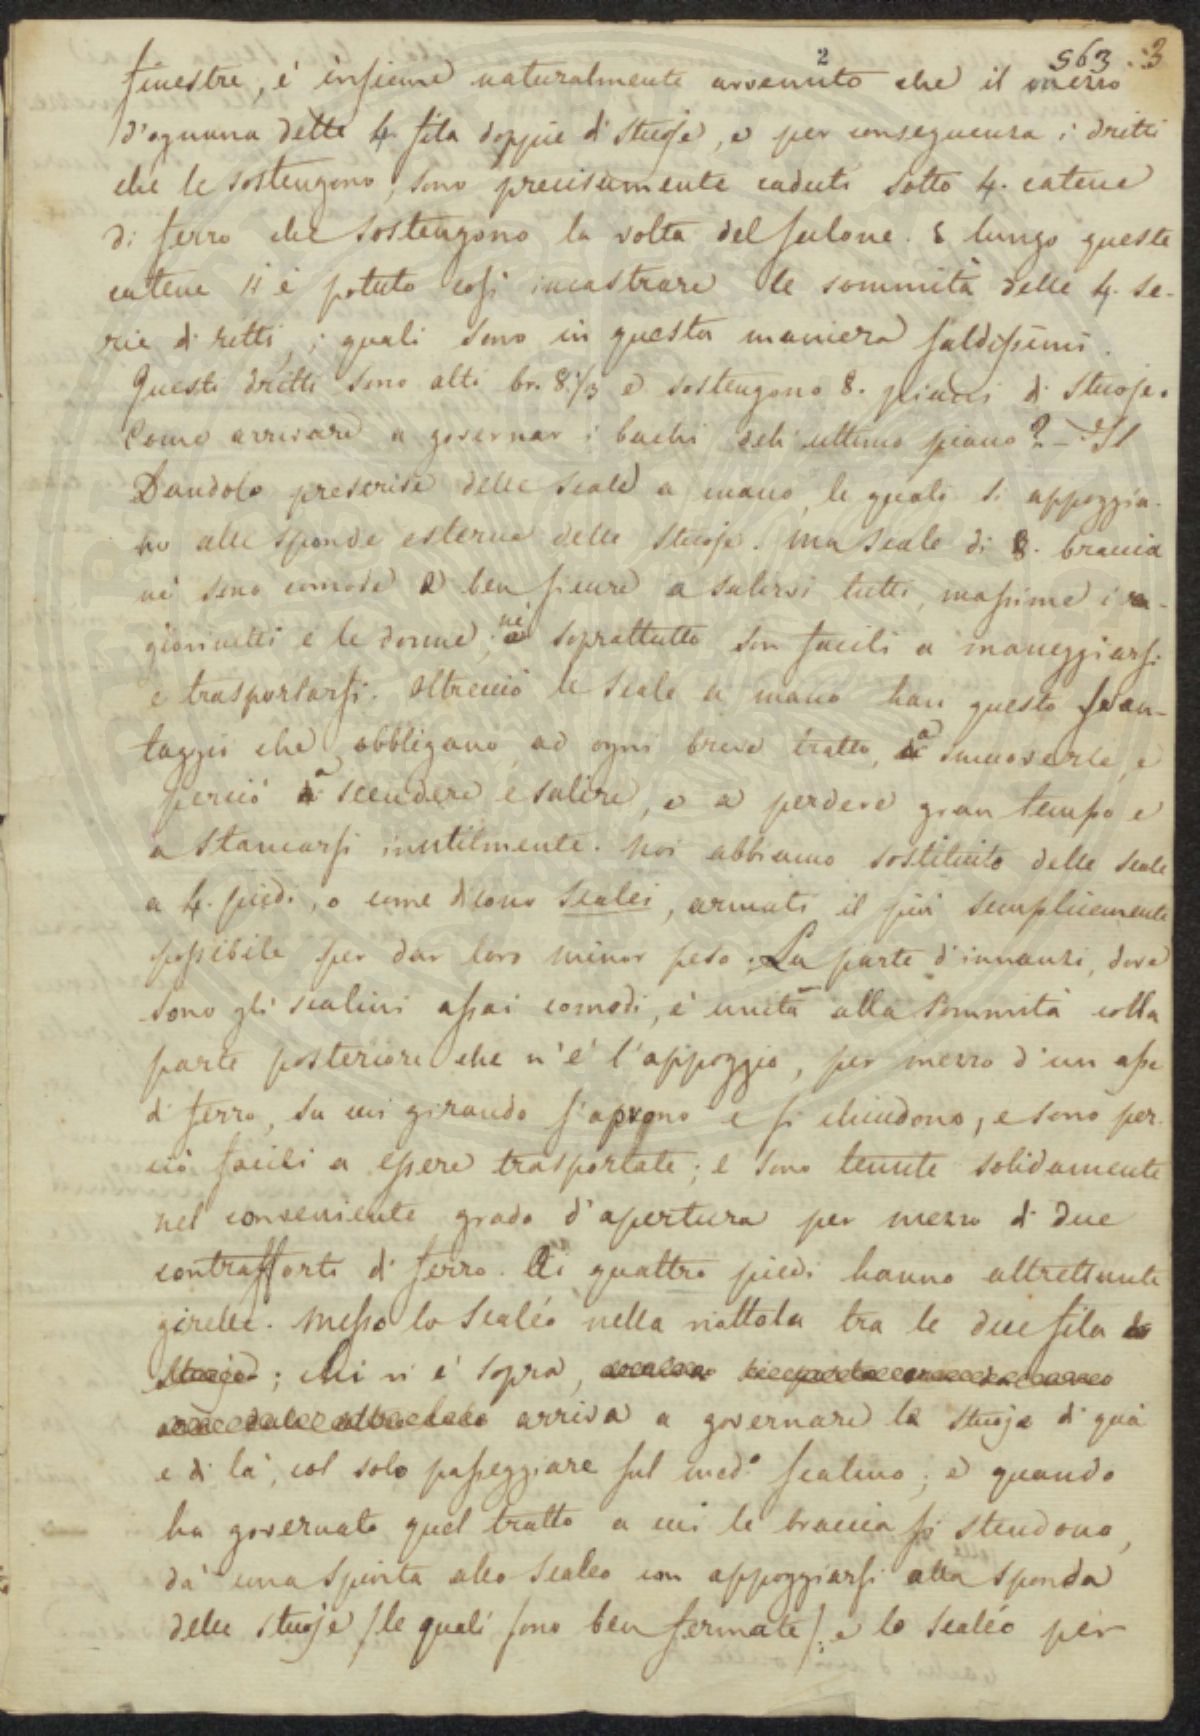 2 563. 3
finestre, è insieme naturalmente avvenuto che il mezzo
d'ognuna delle 4. fila doppie di stuoje, e per conseguenza i dritti
che le sostengono, sono precisamente caduti sotto 4. catene
di ferro che sostengono la volta del salone. E lungo queste
catene si è potuto così incastrare le sommità delle 4. se-
rie di ritti, i quali sono in questa maniera saldissimi.
Questi dritti sono alti br. 8.⅓ e sostengono 8. piani di stuoje.
Come arrivare a governar i bachi dell'ultimo piano? - Il
Dandolo prescrive delle scale a mano, le quali si appoggia-
no alle sponde esterne delle stuoje. Ma scale di 8. braccia
nè sono comode e ben sicure a salirvi tutti, massime i
giovinetti e le donne, nè soprattutto son facili a maneggiarsi
e trasportarsi. Oltracciò le scale a mano han questo svan-
taggio che obbligano, ad ogni breve tratto, a smuoverle, e
perciò a scendere e salire, e a perdere gran tempo e
a stancarsi inutilmente. Noi abbiamo sostituito delle scale
a 4. piedi, o come dicono scalei, armati il più semplicemente
possibile per dar loro minor peso. La parte d'innanzi, dove
sono gli scalini assai comodi, è unita alla sommità colla
parte posteriore che n'è l'appoggio, per mezzo d'un asse
di ferro, su cui girando s'aprono e si chiudono, e sono per-
ciò facili a essere trasportate; e sono tenute solidamente
nel conveniente grado d'apertura per mezzo di due
contrafforti di ferro. I quattro piedi hanno altrettante
girelle. Messo lo scaléo nella viottola tra le due fila di
stuoje; chi vi è sopra,
arriva a governare le stuoje di quà
e di là, col solo passeggiare sul med.º scalino; e quando
ha governato quel tratto a cui le braccia si stendono,
dà una spinta allo scaleo con appoggiarsi alla sponda
delle stuoje (le quali sono ben fermate); e lo scaléo per